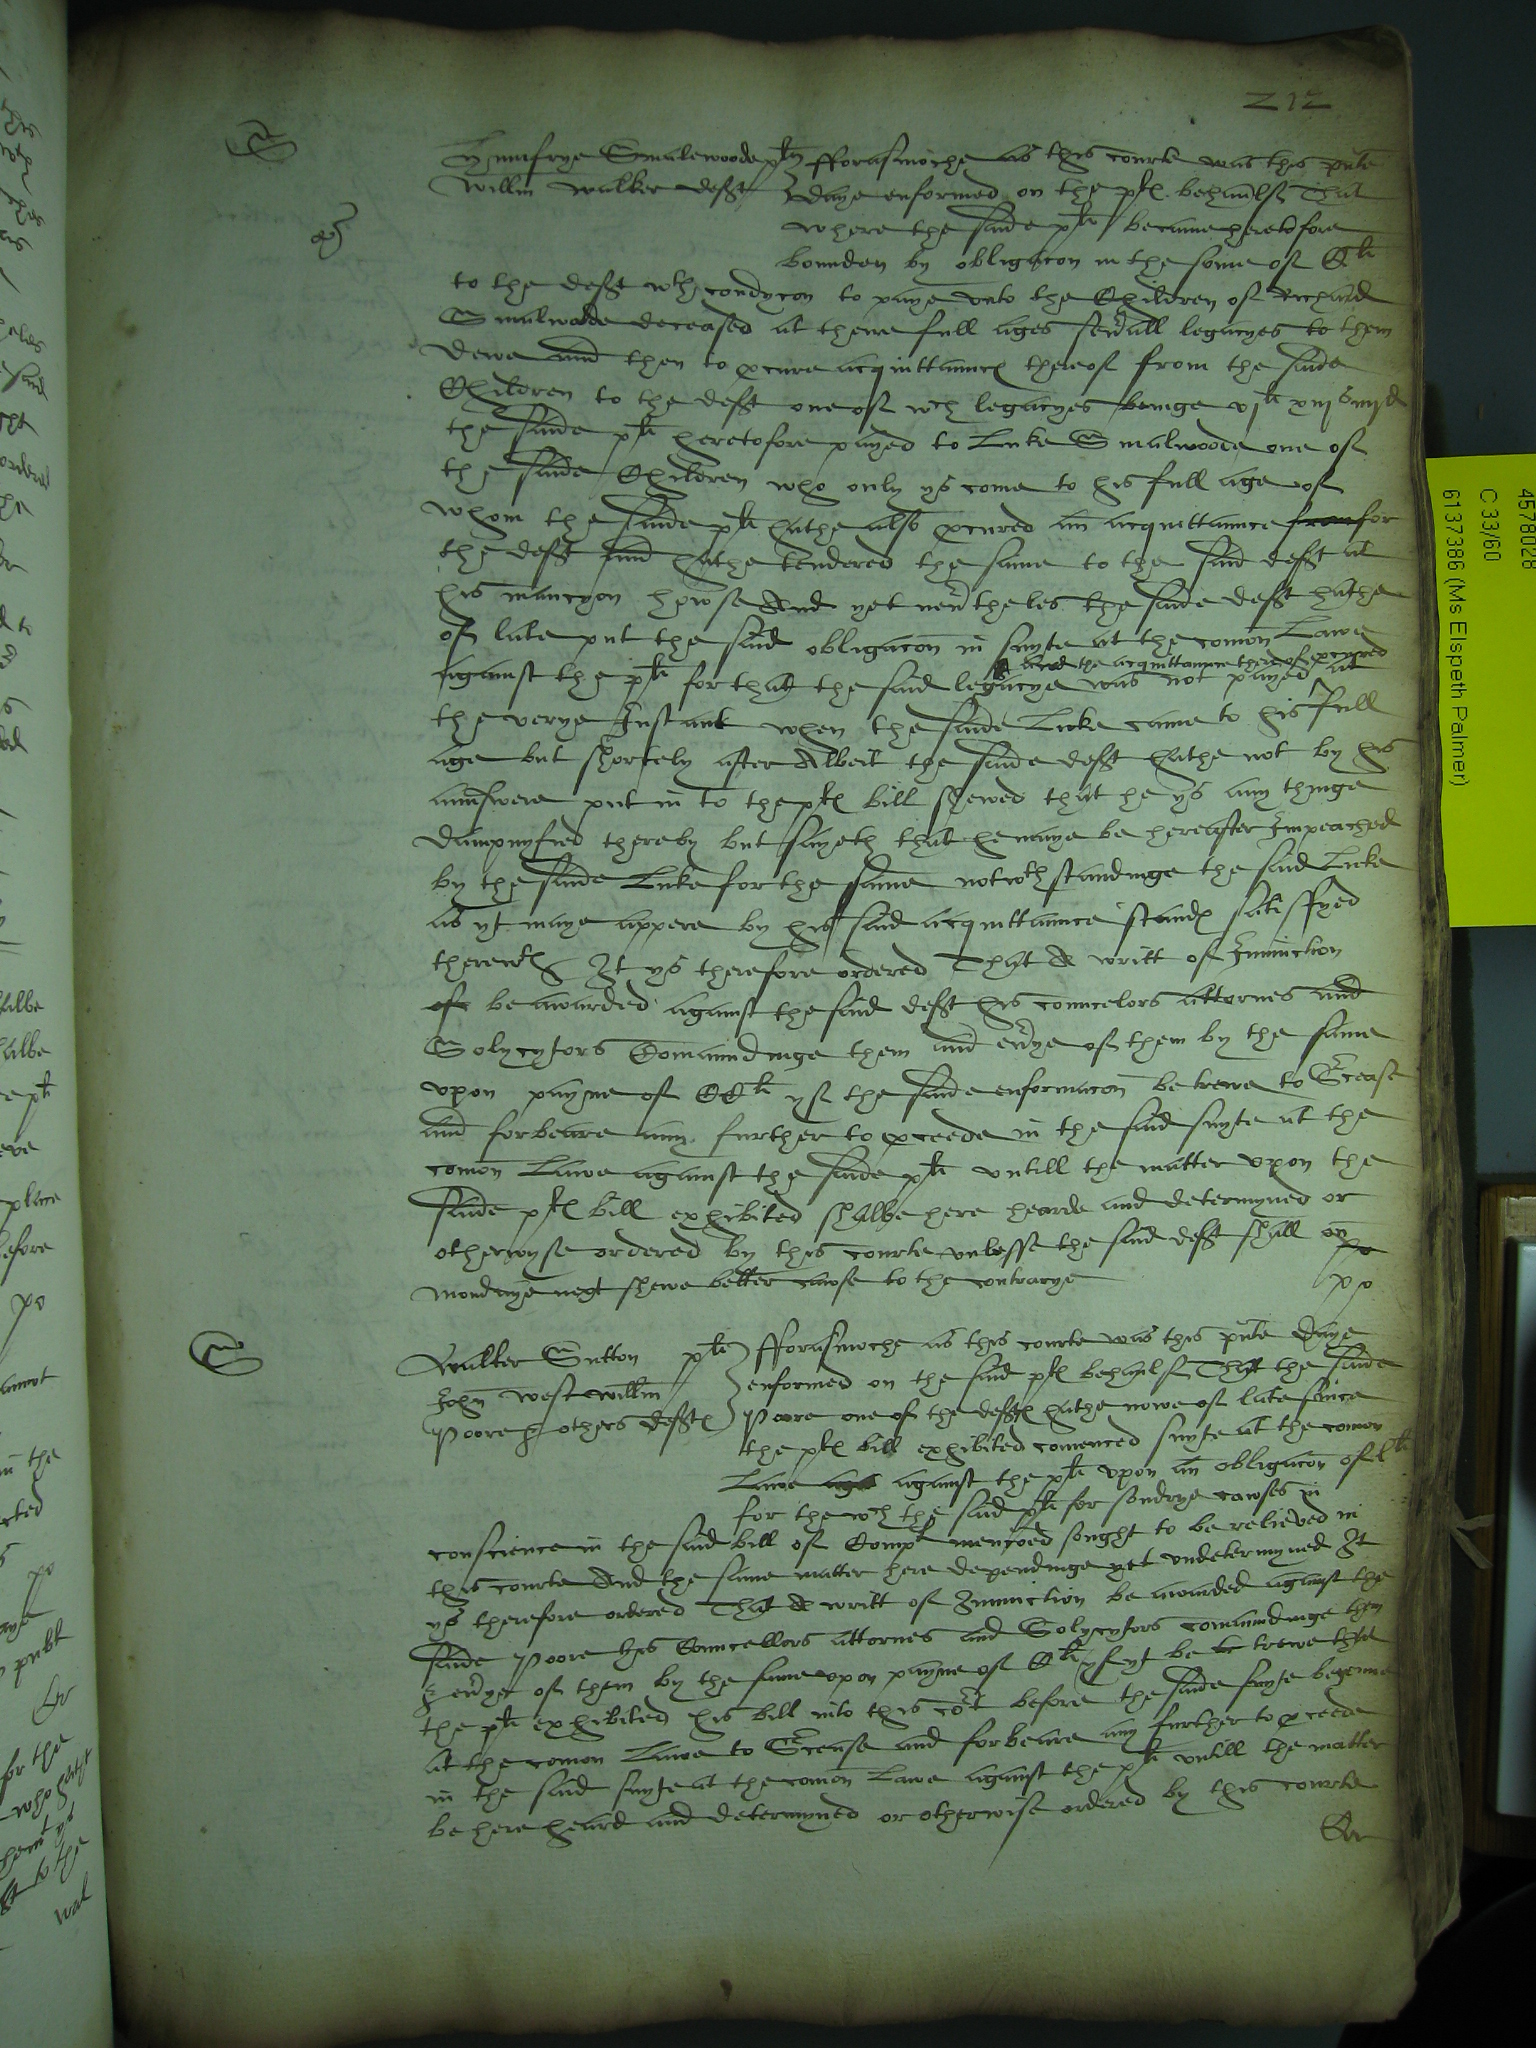 212
S
Hunnfrye Smalewoode plt fforasmoche as this courte was this pnte
Willm Walker deft daye enformed on the pltes behaulf That
where the saide plt became heretofore
bounden by obligacon in the some of Cli
to the deft wth condycon to paye unto the Children of Richard
Smalwoode deceased at theire full ages seu'all legacyes to them
dewe and then to pcure acquittaunces thereof from the saide
Children to the deft one of wch legacyes beinge vjli xiijs iiijd
the saide plt heretofore payed to Luke Smalwoode one of
the saide Children who only ys come to his full age of
whom the saide plt hathe also pcured an acquittaunce from for
the deft and hathe tendered the same to the said deft at
his mancyon howse And yet neu'theles the saide deft hathe
of late put the said obligacon in suyte at the comon Lawe
and the acquittaunce thereof pcured
against the plt for that the said legacye was not payed at
the verye Instant when the saide Luke came to his full
age but shortely after Albeit the saide deft hathe not by his
aunswere put in to the pltes bill shewed that he ys any thinge
dampnyfied thereby but sayeth that he maye be hereafter Impeached
by the saide Luke for the same notwthstandinge the said Luke
as yt maye appere by his said acquittaunce standes satisfyed
therewth It ys therefore ordered That A writt of Iniunction
of be awarded against the said deft his councelors attornes and
Solycytors Comaundinge them and eu'ye of them by the same
upon payne of CCli yf the saide enformacon be trewe to Surcease
and forbeare any further to pceede in the said suyte at the
comon Lawe against the saide plt untill the matter upon the
saide pltes bill exhibited shalbe here hearde and determyned or
otherwyse ordered by this courte unlesse the said deft shall on
mondaye next shewe better cawse to the contrarye
po
po
S
Walter Sutton plt fforasmoche as this courte was this pnte daye
John West Willm enformed on the said pltes behaulf That the saide
Poore & others deftes Poore one of the deftes hathe nowe of late since
the pltes bill exhibited comenced suyte at the comon
Lawe aga against the plt upon an obligacon of Lli
for the wch the said plt for sondrye cawses in
conscience in the said bill of Complt mencioed sought to be relieved in
this courte And the same matter here dependinge yet undetermyned It
ys therefore ordered That A writt of Iniunction be awarded against the
saide Poore his Councellors attornes and Solycytors comaundinge them
& eu'ye of them by the same upon payne of Cli yf yt be trewe that
the plt exhibited his bill into this cort before the saide suyte begonne
at the comon Lawe to Surcease and forbeare any further to pceede
in the said suyte at the comon Lawe against the plt untill the matter
be here heard and determyned or otherwise ordered by this courte
4578028
C 33/60
6137386 (Ms Elspeth Palmer)